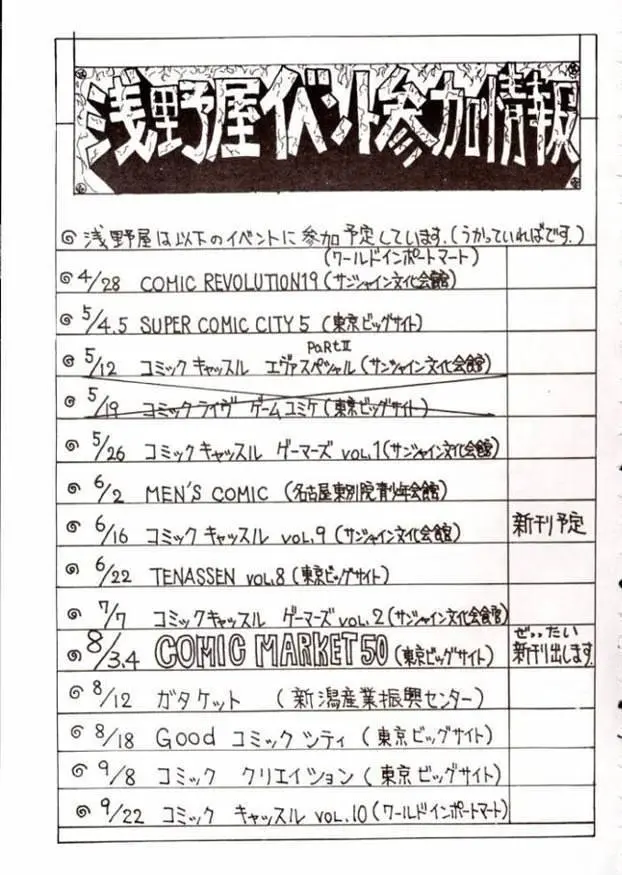 浅野屋イベント参加情報
浅野屋は以下のイベントに参加予定しています.(うかっていればです.)
(ワールドインポートマート)
4/28 COMIC REVOLUTION19(サンシャイン文化会館)
5/4.5 SUPER COMIC CITY 5 (東京ビッグサイト)
PaRtⅡ
5/12 コミックキャッスル エヴァスペシャル(サンシャイン文化会館)
5/19 コミックライヴ ゲームコミケ(東京ビッグサイト)
5/26 コミックキャッスル ゲーマーズ VOL.1(サンシャイン文化会館)
6/2 MEN'S COMIC (名古屋東別院青少年会館)
6/16 コミックキャッスル VOL.9 (サンシャイン文化会館) 新刊予定
6/22 TENASSEN VOL.8(東京ビッグサイト)
7/7 コミックキャッスル ゲーマーズ VOL.2(サンシャイン文化会館)
8/3.4 COMIC MARKET 50(東京ビッグサイト) ぜったい新刊出します.
8/12 ガタケット (新潟産業振興センター)
8/18 Good コミックシティ(東京ビッグサイト)
9/8 コミック クリエイション(東京ビッグサイト)
9/22 コミック キャッスル VOL.10(ワールドインポートマート)